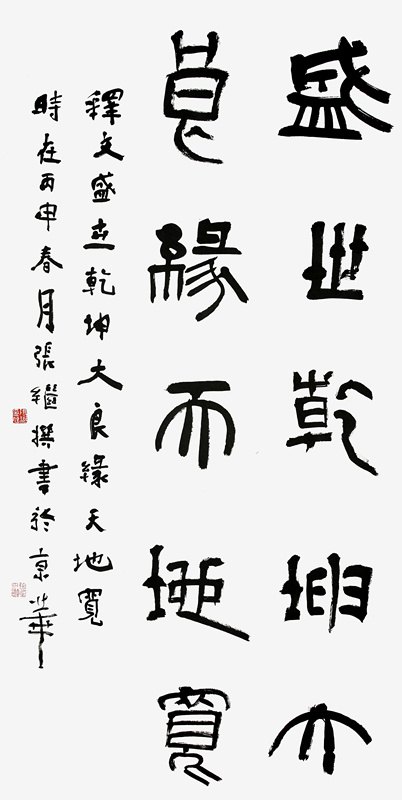 盛世乾坤大
良緣天地寬
釋文盛世乾坤大良緣天地寬
時在丙申春月張繼撰書於京華